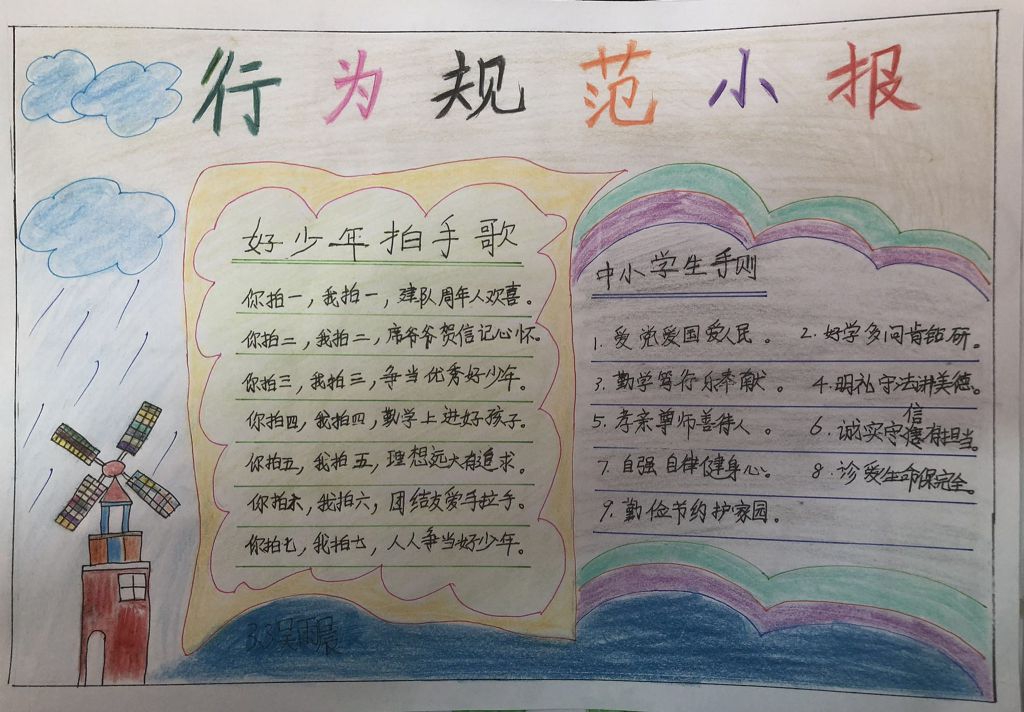 行为规范小报
好少年拍手歌
你拍一，我拍一，建队周年人欢喜。
你拍二，我拍二，席爷爷贺信记心怀。
你拍三，我拍三，争当优秀好少年。
你拍四，我拍四，勤学上进好孩子。
你拍五，我拍五，理想远大有追求。
你拍六，我拍六，团结友爱手拉手。
你拍七，我拍七，人人争当好少年。
中小学生手则
1. 爱党爱国爱人民。
2. 好学多问肯钻研。
3. 勤学笃行乐奉献。
4. 明礼守法讲美德。
5. 孝亲尊师善待人。
6. 诚实守信有担当。
7. 自强自律健身心。
8. 珍爱生命保完全。
9. 勤俭节约护家园。
3.3吴雨晨